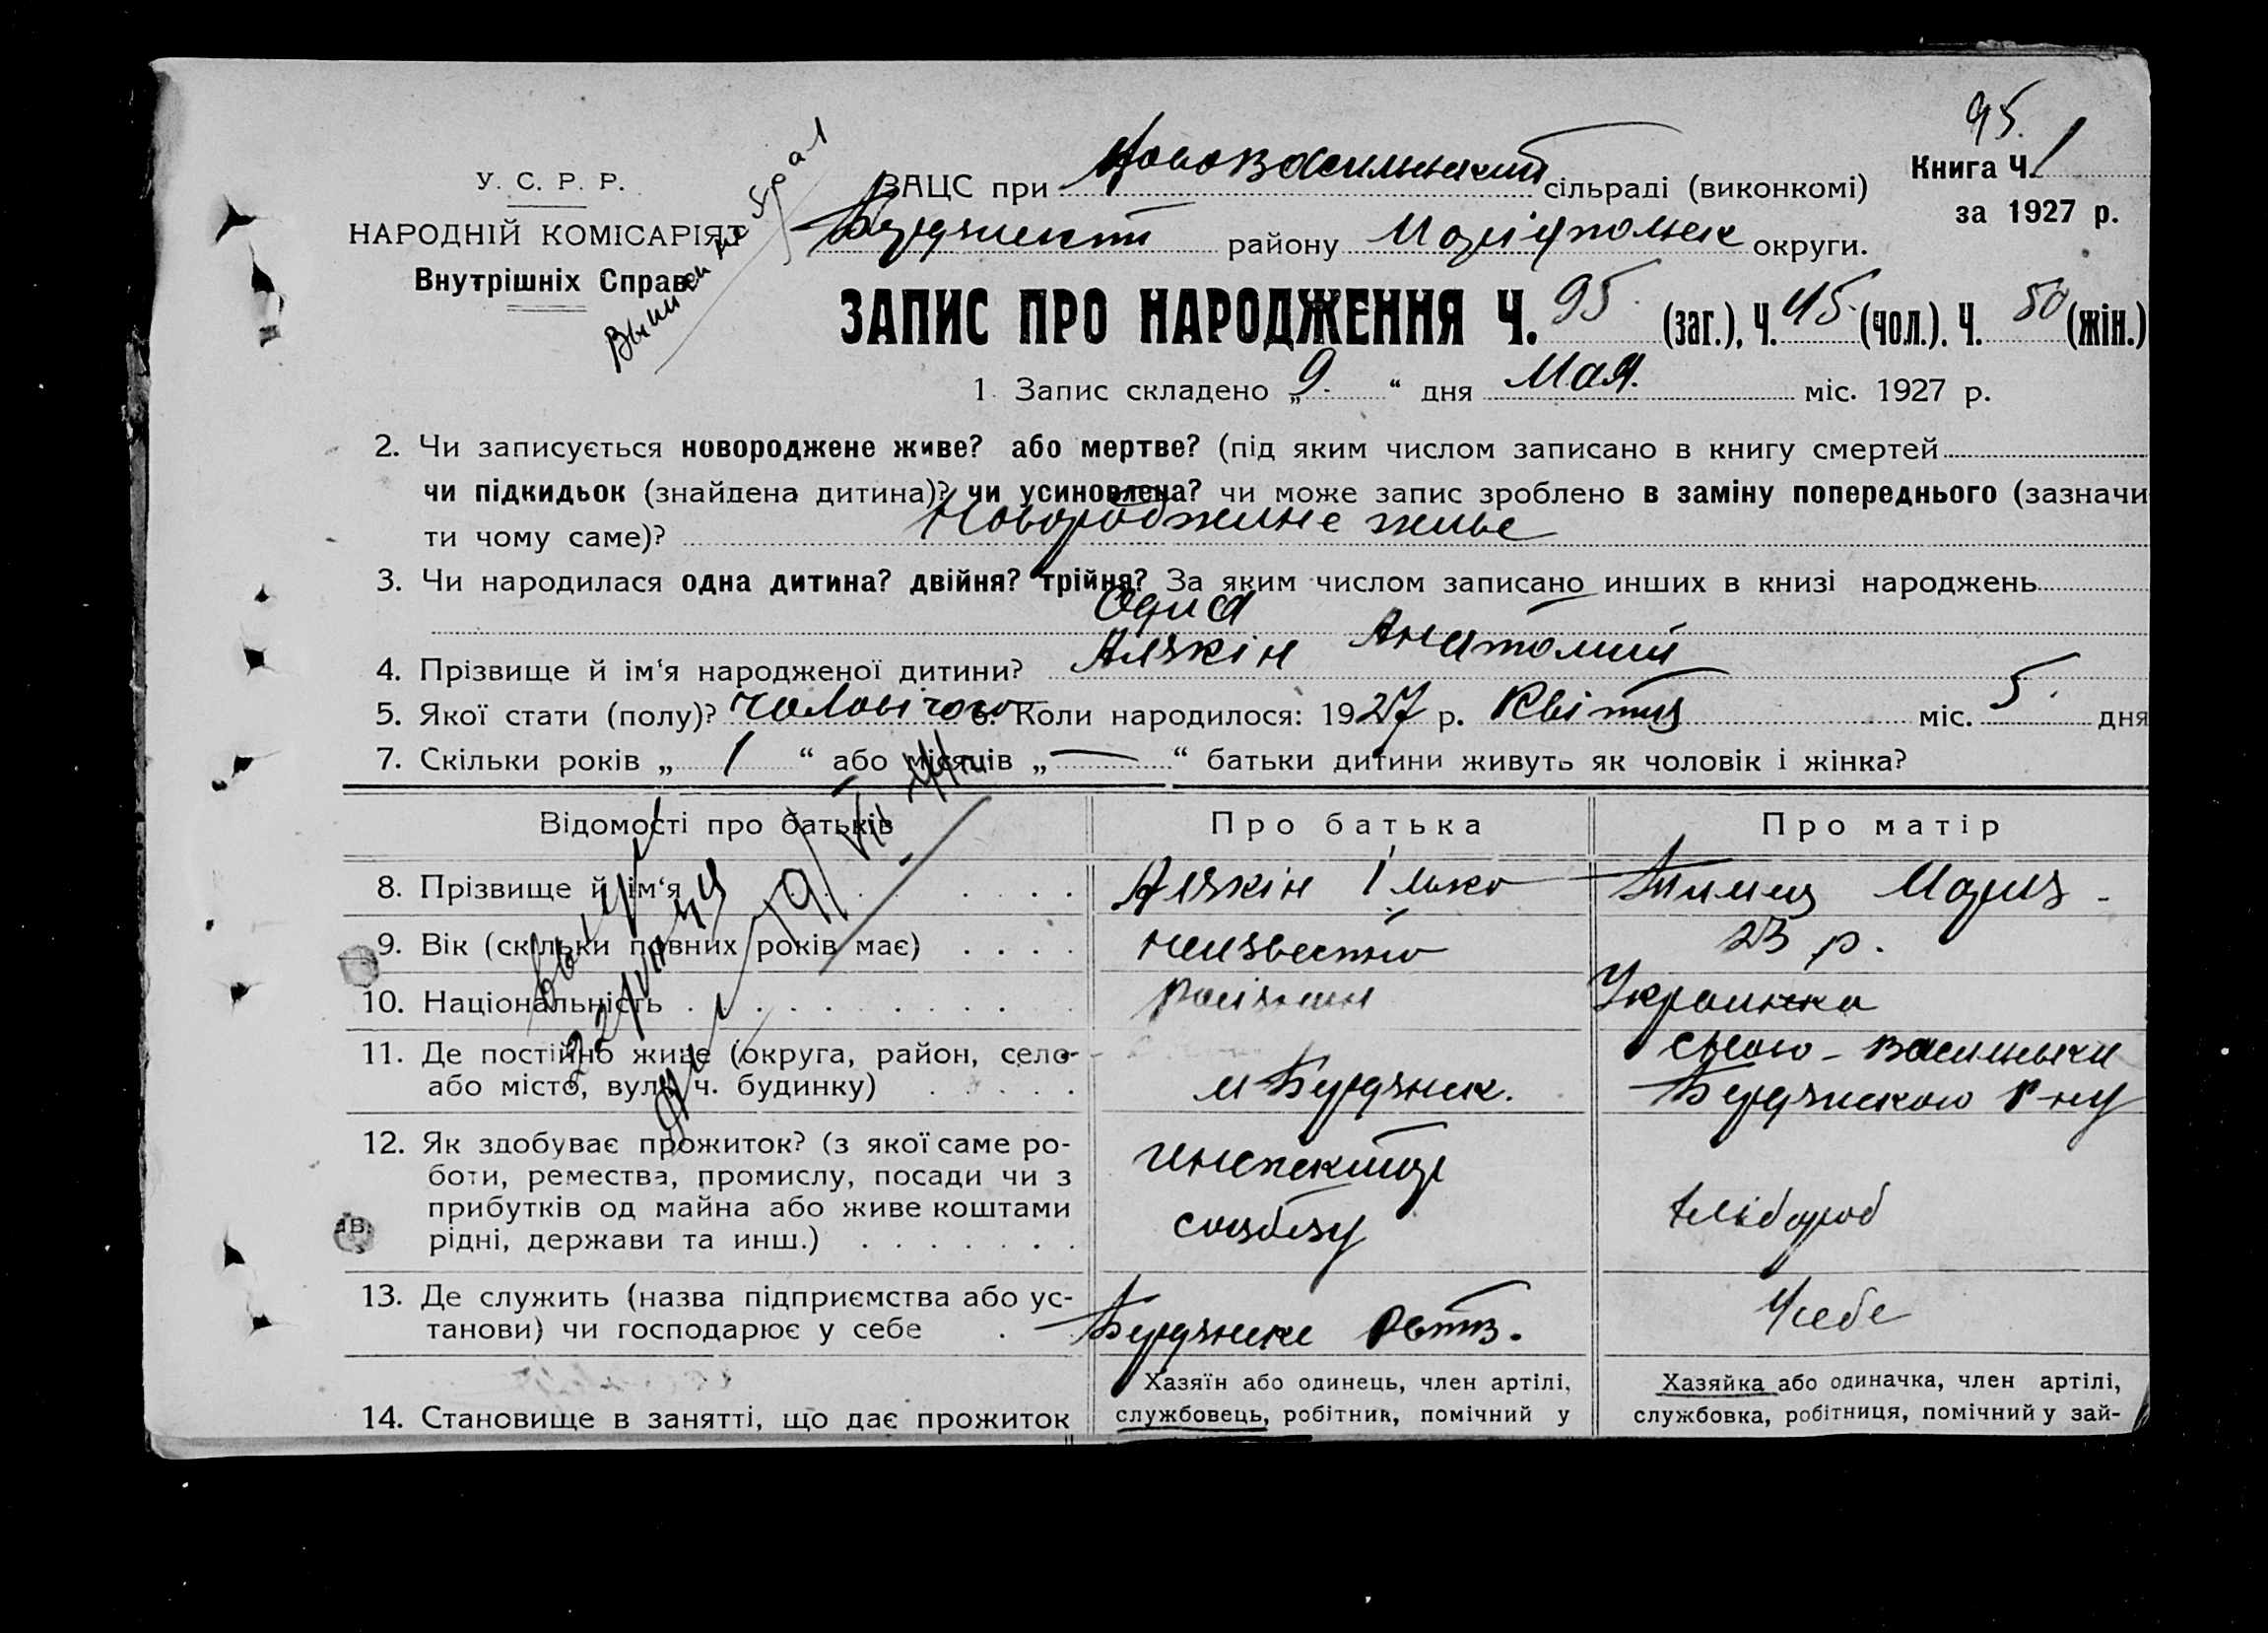 95.
У. С. Р. Р.
НАРОДНІЙ КОМІСАРІЯТ
Внутрішніх Справ
ВАЦС при Нововасильвский сільраді (виконкомі)
Книга Ч. 1
за 1927 р.
району Маріупольск округи.
ЗАПИС ПРО НАРОДЖЕННЯ Ч. 95 (заг.), Ч. 45 (чол.). Ч. 50 (жін.)
1. Запис складено „ 9 “ дня Мая. міс. 1927 р.
2. Чи записується новороджене живе? або мертве? (під яким числом записано в книгу смертей
чи підкидьок (знайдена дитина)? чи усиновлена? чи може запис зроблено в заміну попереднього (зазначи
ти чому саме)? Новорожденне живе
3. Чи народилася одна дитина? двійня? трійня? За яким числом записано инших в книзі народжень
Одна
4. Прізвище й ім‘я народженої дитини? Алякін Анатолий
5. Якої стати (полу)? чоловічого 6. Коли народилося: 1927 р. Квітня міс. 5 дня
7. Скільки років „ 1 “ або місяців „ — “ батьки дитини живуть як чоловік і жінка?
Відомості про батьків
Про батька
Про матір
8. Прізвище й ім‘я
Алякін Ілько
Мария
9. Вік (скільки повних років має)
неизвестно
23 р.
10. Національність
Украинка
11. Де постійно живе (округа, район, село
або місто, вул., ч. будинку)
м Бердянск.
Ново-Васильвки
Бердянского р-ну
12. Як здобуває прожиток? (з якої саме ро-
боти, ремества, промислу, посади чи з
прибутків од майна або живе коштами
рідні, держави та инш.)
инспектор
хлібороб
13. Де служить (назва підприємства або ус-
танови) чи господарює у себе
У себе
14. Становище в занятті, що дає прожиток
Хазяїн або одинець, член артілі,
службовець, робітник, помічний у
Хазяйка або одиначка, член артілі,
службовка, робітниця, помічний у зай-